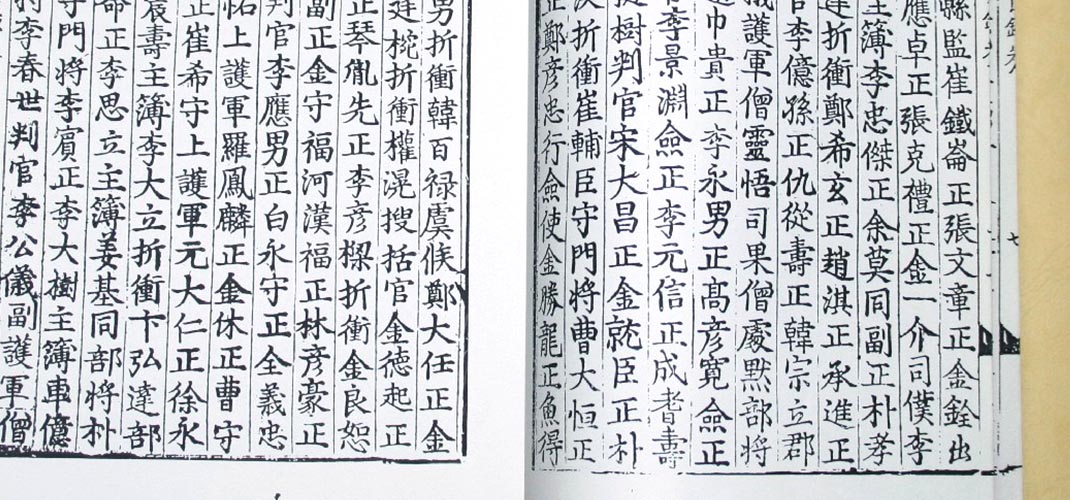 縣監崔鐵崙正張文章正金銓出
應卓正張克禮正金一介司僕李
主簿李忠傑正余莫同副正朴孝
折衝鄭希玄正趙淇正承進正
官李億孫正仇從壽正韓宗立郡
護軍僧靈悟司果僧處默部將
巾貴正李永男正高彦寬僉正
李景淵僉正李元信正成耆壽
樹判官宋大昌正金就臣正朴
折衝崔輔臣守門將曹大恒正
正鄭彦忠行僉使金勝龍正魚得
男折衝韓百祿虞候鄭大任正金
廷椀折衝權滉搜括官金德起正
正琴胤先正李彦樑折衝金良恕
副正金守福河漢福正林彦豪正
判官李應男正白永守正全義忠
上護軍羅鳳麟正金休正曹守
正崔希守上護軍元大仁正徐永
壽主簿李大立折衝卞弘達部
正李思立主簿姜基同部將朴
守門將李賓正李大樹主簿車億
李春世判官李公儀副護軍僧